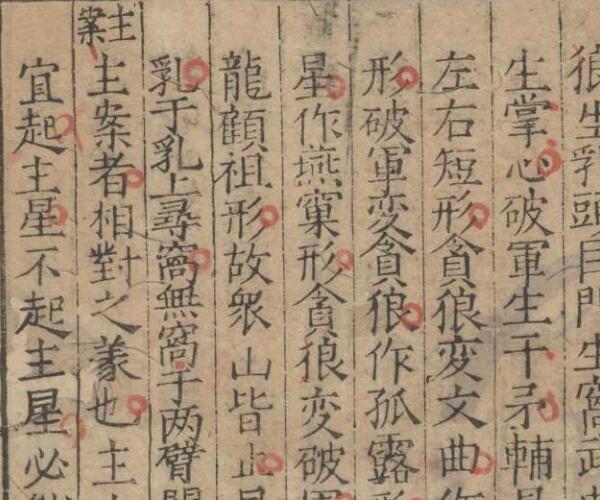 狼生乳頭巨門生窩武
生掌心破軍生干矛輔
左右短形貪狼変文曲作
形破軍变貪狼作孤露形
星作燕窠形貪狼变破軍
龍顧祖形故衆山皆止
乳于乳上尋窩無窩于两臂
主案
主案者相對之義也主
宜起主星不起主星必